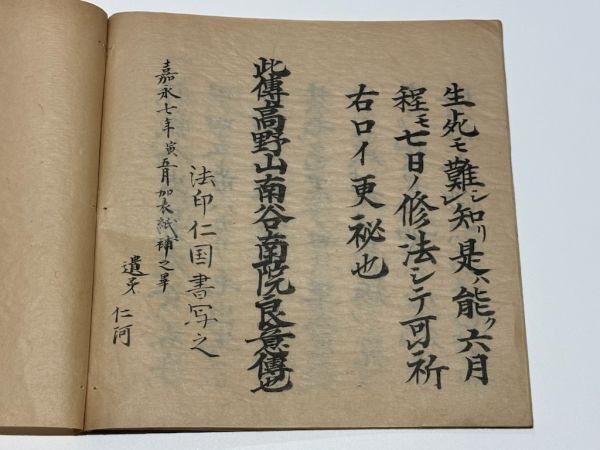 生死モ難シレ知リ是ハ能ク六月
程モ七日ノ修法シテ可レ祈
右ロイ更秘也
此傳高野山南谷南院良意傳也
法印仁国書写之
嘉永七年寅五月加表紙補之畢
遺弟 仁阿